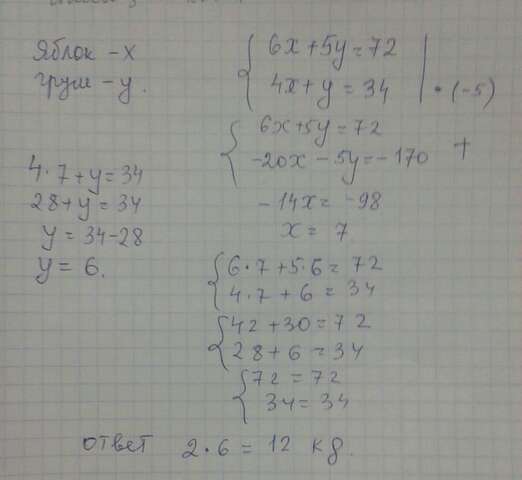 Яблок - x
груш - y.
6x + 5y = 72
4x + y = 34 | • (-5)
6x + 5y = 72
-20x - 5y = -170 +
-14x = -98
x = 7
4 • 7 + y = 34
28 + y = 34
y = 34 - 28
y = 6.
6 • 7 + 5 • 6 = 72
4 • 7 + 6 = 34
42 + 30 = 72
28 + 6 = 34
72 = 72
34 = 34
ответ 2 • 6 = 12 kg.